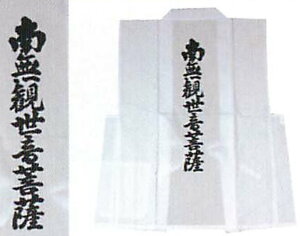 南無観世音菩薩
南無観世音菩薩